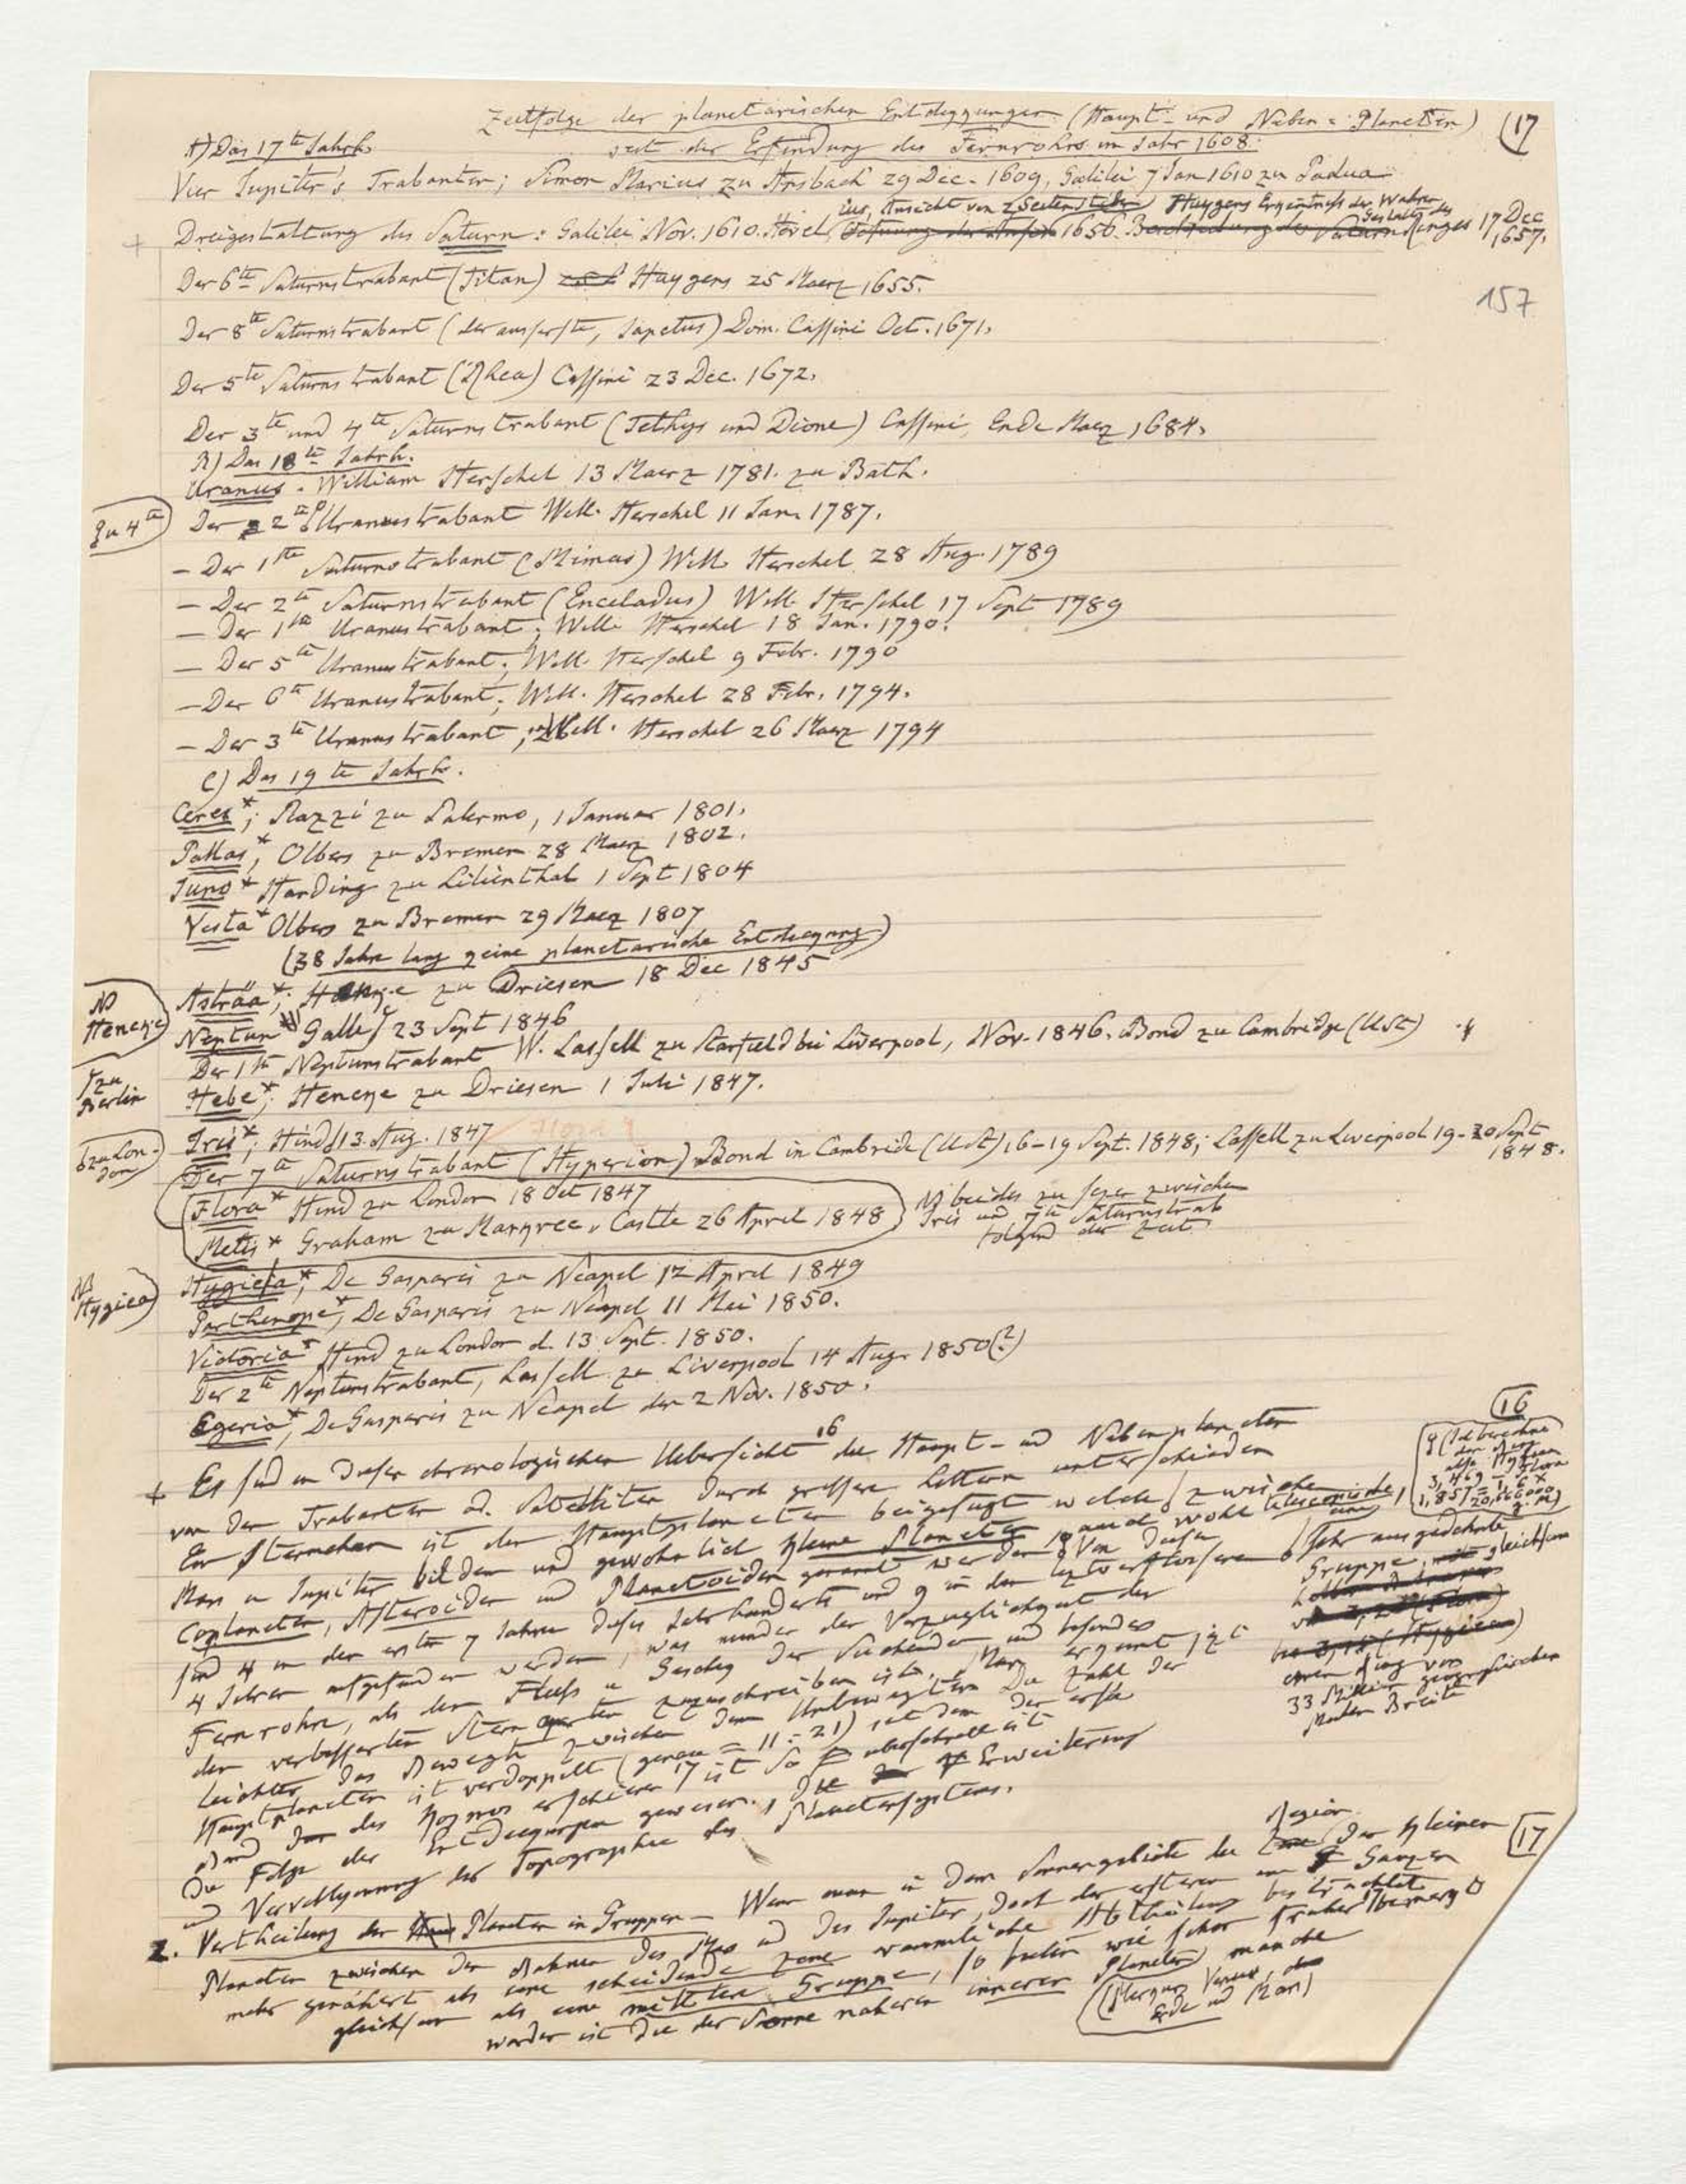 Zeitfolge der planetarischen Entdeggungen (Haupt- und Neben-Planeten) (17
seit der Erfindung des Fernrohrs im Jahr 1608.
A) Das 17te Jahrh.
Vier Jupiter's Trabanten; Simon Marius zu Ansbach 29 Dec. 1609, Galilei 7 Jan 1610 zu Padua
ius, Ansicht von 2 Seitenstäben Huygens Erkentniß der Wahren Gestalt des
Dreigestaltung des Saturn: Galilei Nov. 1610. Hevel 1656. Ringes 17 Dec 1657.
Der 6te Saturnstrabant (Titan) Huygens 25 Maerz 1655.
157
Der 8te Saturnstrabant (der ausserste, Japetus) Dom. Cassini Oct. 1671.
Der 5te Saturnstrabant (Rhea) Cassini 23 Dec. 1672.
Der 3te und 4te Saturnstrabant (Tethys und Dione) Cassini, Ende Maerz 1684.
B) Das 18te Jahrh.
Uranus. William Herschel 13 Maerz 1781. zu Bath.
Der 2te Uranustrabant Will. Herschel 11 Jan. 1787.
Zu 4te
– Der 1ste Saturnstrabant (Mimas) Will. Herschel 28 Aug. 1789
– Der 2te Saturnstrabant (Enceladus) Will. Herschel 17 Sept 1789
– Der 1ste Uranustrabant; Will. Herschel 18 Jan. 1790.
– Der 5te Uranustrabant; Will. Herschel 9 Febr. 1790
– Der 6te Uranustrabant; Will. Herschel 28 Febr. 1794.
– Der 3te Uranustrabant; Will. Herschel 26 Maerz 1794
C) Das 19te Jahrh.
Ceres*; Piazzi zu Palermo, 1 Januar 1801.
Pallas*, Olbers zu Bremen 28 Maerz 1802.
Juno* Harding zu Lilienthal 1 Sept 1804
Vesta* Olbers zu Bremen 29 Maerz 1807
(38 Jahre lang geine planetarische Entdegung)
Asträa*; Henge zu Driesen 18 Dec 1845
NB Hencke
Neptun Galle 23 Sept 1846
Der 1te Neptunstrabant W. Lassell zu Starfield bei Liverpool, Nov. 1846. Bond zu Cambridge (USt)
zu Berlin
Hebe*; Hencke zu Driesen 1 Juli 1847.
Iris*; Hind 13. Aug. 1847
zu London
Der 7te Saturnstrabant (Hyperion) Bond in Cambride (USt) 16-19 Sept. 1848; Lassell zu Liverpool 19-20 Sept 1848.
Flora* Hind zu London 18 Oct 1847
Metis* Graham zu Margree-Castle 26 April 1848
NB beides zu sezen zwischen
Iris und 7te Saturnstrab
folgend der Zeit
Hygieia*, De Gasparis zu Neapel 12 April 1849
NB Hygiea
Parthenope*, De Gasparis zu Neapel 11 Mai 1850.
Victoria* Hind zu London d. 13 Sept. 1850.
Der 2te Neptunstrabant, Lassell zu Liverpool 14 Aug. 1850(?)
Egeria*, De Gasparis zu Neapel den 2 Nov. 1850.
+ Es sind in dieser chronologischen Uebersicht 16 die Haupt- und Nebenplaneten
16
von den Trabanten od. Satelliten durch grössere Lettern unterschieden
Ein Sternchen ist den Hauptplaneten beigefügt welche zwischen
Mars u Jupiter bilden und gewohnlich kleine Planeten, auch wohl telescopische,
Coplaneten, Asteroiden und Planetoiden genannt werden. Von diesen
sind 4 in den ersten 7 Jahren dieses Jahrhunderts und 9 in den leztverflossenen
4 Jahren aufgefunden worden, was minder der Vorzuglichgeit der
Fernrohre, als dem Fleiss u Geschig der Suchenden und besonders
den verbesserten Sterngarten zuzuschreiben ist. Man ergennt jezt
leichter das Bewegte zwischen dem Unbewegten. Die Zahl der
Hauptplaneten ist verdoppelt (genau = 11:21) seit dem der erste
Band des Kosmos erschienen. So überschnell ist
die Folge der Entdegungen gewesen, die Erweiterung
und Vervollgomnung der Topographie des Planetensystems.
sehr ausgedehnte
Gruppe, gleichsam
einen Ring von
33 Million geographischen
Meilen Breite
17
2. Vertheilung der Planeten in Gruppen – Wenn man in dem Sonnengebiete die Region der kleinen
Planeten zwischen den Bahnen des Mars und des Jupiter, doch der ersteren im Ganzen
mehr genähert als eine scheidende Zone raumliche Abtheilung betrachtet
gleichsam als eine mittlere Gruppe, so treten wie schon früher bemergt
worden ist die der Sonne naheren inneren Planeten manche
(Mergur Venus, Erde und Mars)